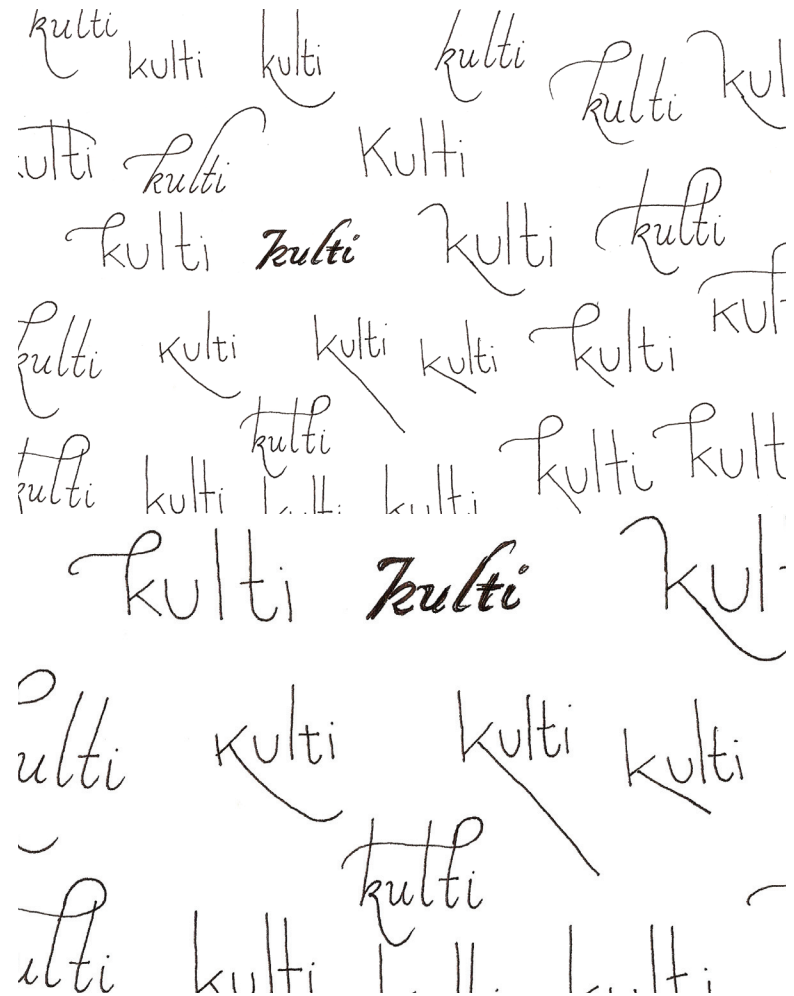 kulti kulti kulti kulti kulti kul
ulti kulti Kulti
kulti kulti kulti kulti
kulti kulti kulti kulti kulti kul
kulti
kulti kulti kulti kulti kulti kult
kulti kulti kul
ulti kulti kulti kulti
kulti
ulti kulti kulti